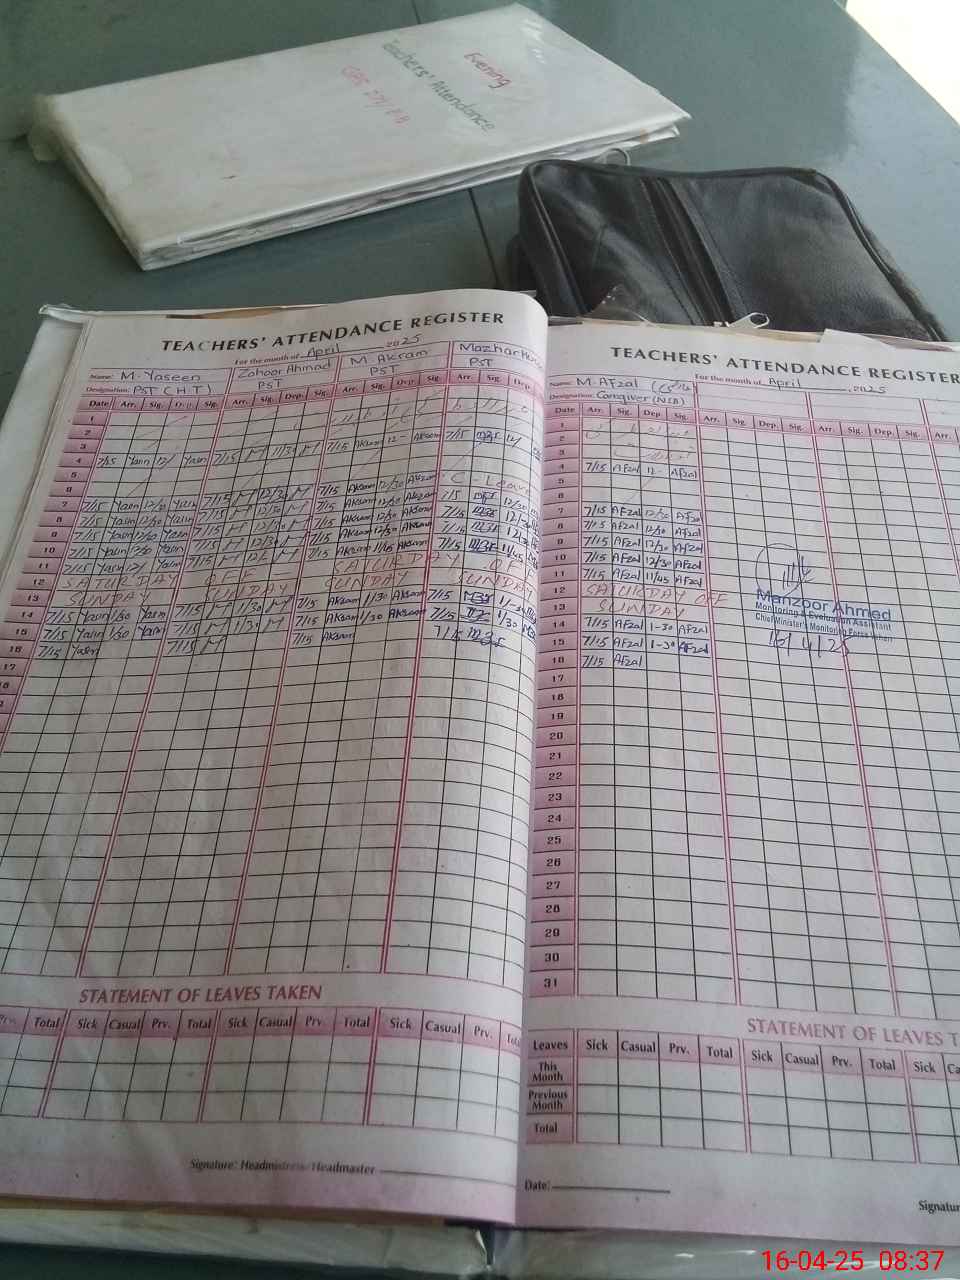 Evening
Teachers' Attendance
TEACHERS' ATTENDANCE REGISTER
For the month of April 2025
Name: M. Yaseen Zahoor Ahmad M. Akram Mazhar
Designation: PST (H.T) PST PST PST
Date Arr. Sig. Dep. Sig. Arr. Sig. Dep. Sig. Arr. Sig. Dep. Sig. Arr. Sig. Dep.
2
3
4 7/15 Yasin 12/ Yasin 7/15 M 11/30 M 7/15 Akram 12- Akram 7/15 12/
5
6 C-Leave
7 7/15 Yasin 12/30 Yasin 7/15 M 12/30 M 7/15 Akram 12/30 Akram
8 7/15 Yasin 12/30 Yasin 7/15 M 12/30 M 7/15 Akram 12/30 Akram 7/15 12/30
9 7/15 Yasin 12/30 Yasin 7/15 M 12/30 M 7/15 Akram 12/30 Akram 7/15 12/30
10 7/15 Yasin 12/30 Yasin 7/15 M 12/30 M 7/15 Akram 12/30 Akram 7/15 12/30
11 7/15 Yasin 12/ Yasin 7/15 M 12/ M 7/15 Akram 11/45 Akram 7/15 11/45
12 SATURDAY OFF SATURDAY OFF
13 SUNDAY SUNDAY SUNDAY SUNDAY
14 7/15 Yasin 1/30 Yasin 7/15 M 1/30 M 7/15 Akram 1/30 Akram 7/15
15 7/15 Yasin 1/30 Yasin 7/15 M 1/30 M 7/15 Akram 1/30 Akram 7/15 1/30
16 7/15 Yasin 7/15 M 7/15 Akram 7/15
17
STATEMENT OF LEAVES TAKEN
Prv. Total Sick Casual Prv. Total Sick Casual Prv. Total Sick Casual Prv.
Signature: Headmistress/Headmaster
TEACHERS' ATTENDANCE REGISTER
For the month of April, 2025
Name: M. Afzal
Designation: Caregiver (NSB)
Date Arr. Sig. Dep. Sig. Arr. Sig. Dep. Sig. Arr. Sig. Dep. Sig. Arr.
1
2
3
4 7/15 Afzal 12- Afzal
5
6
7 7/15 Afzal 12/30 Afzal
8 7/15 Afzal 12/30 Afzal
9 7/15 Afzal 12/30 Afzal
10 7/15 Afzal 12/30 Afzal
11 7/15 Afzal 11/45 Afzal
12 SATURDAY OFF
13 SUNDAY
14 7/15 Afzal 1-30 Afzal
15 7/15 Afzal 1-30 Afzal
16 7/15 Afzal
17
18
19
20
21
22
23
24
25
26
27
28
29
30
31
Manzoor Ahmed
Monitoring & Evaluation Assistant
Chief Minister's Monitoring Force
16/4/25
STATEMENT OF LEAVES
Leaves Sick Casual Prv. Total Sick Casual Prv. Total Sick
This Month
Previous Month
Total
Date:
16-04-25 08:37